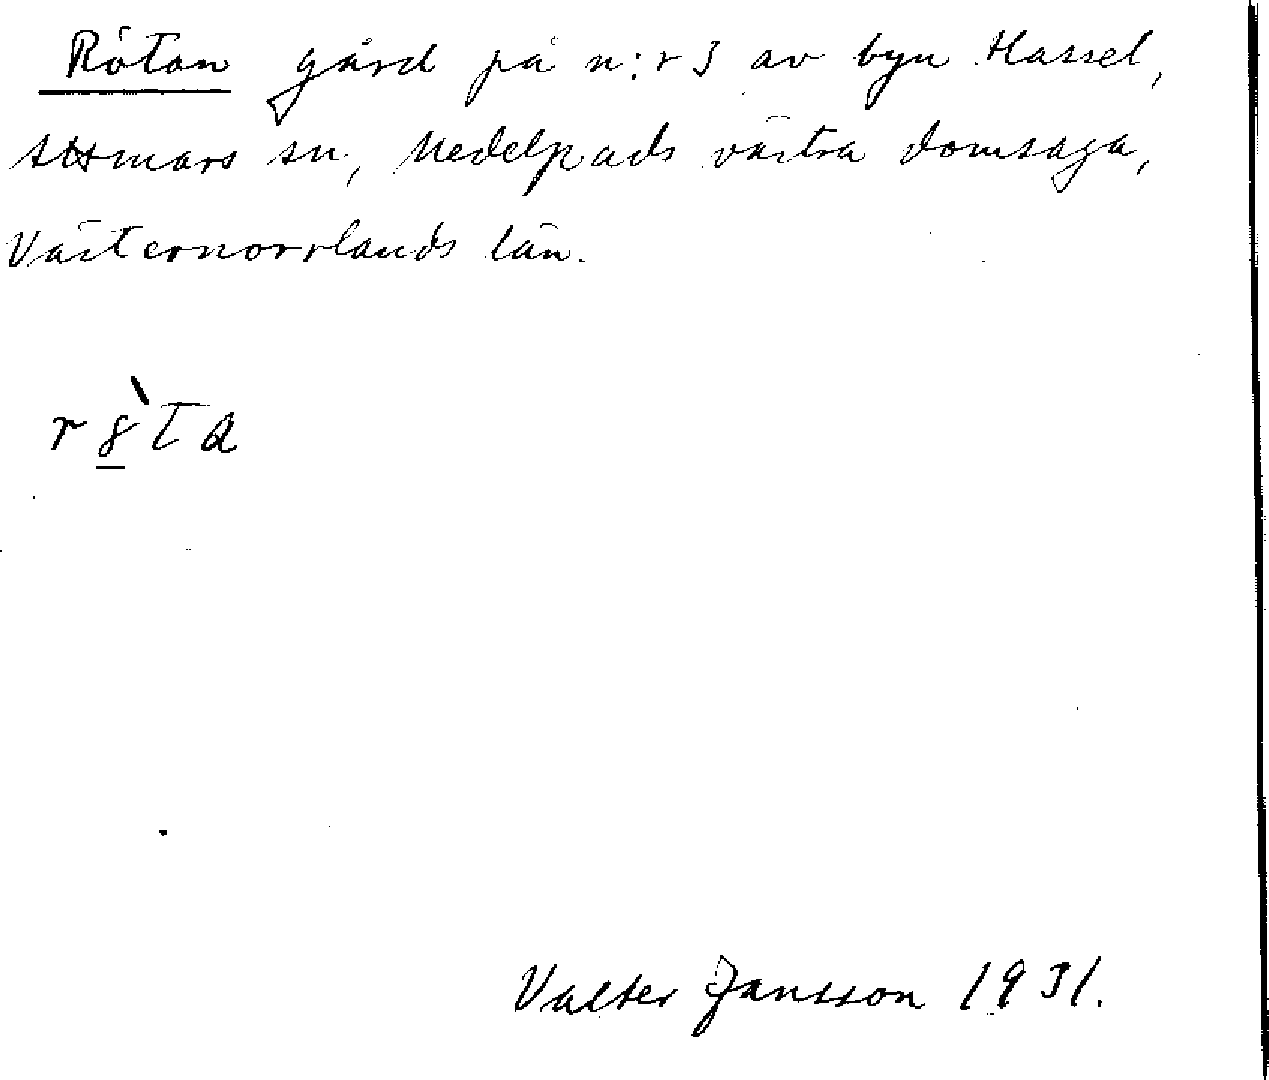 Rötan gård på n:r 3 av byn Hassel,
Attmars sn, Medelpads västra domsaga,
Västernorrlands län.
r8̲̀ta
Valter Jansson 1931.